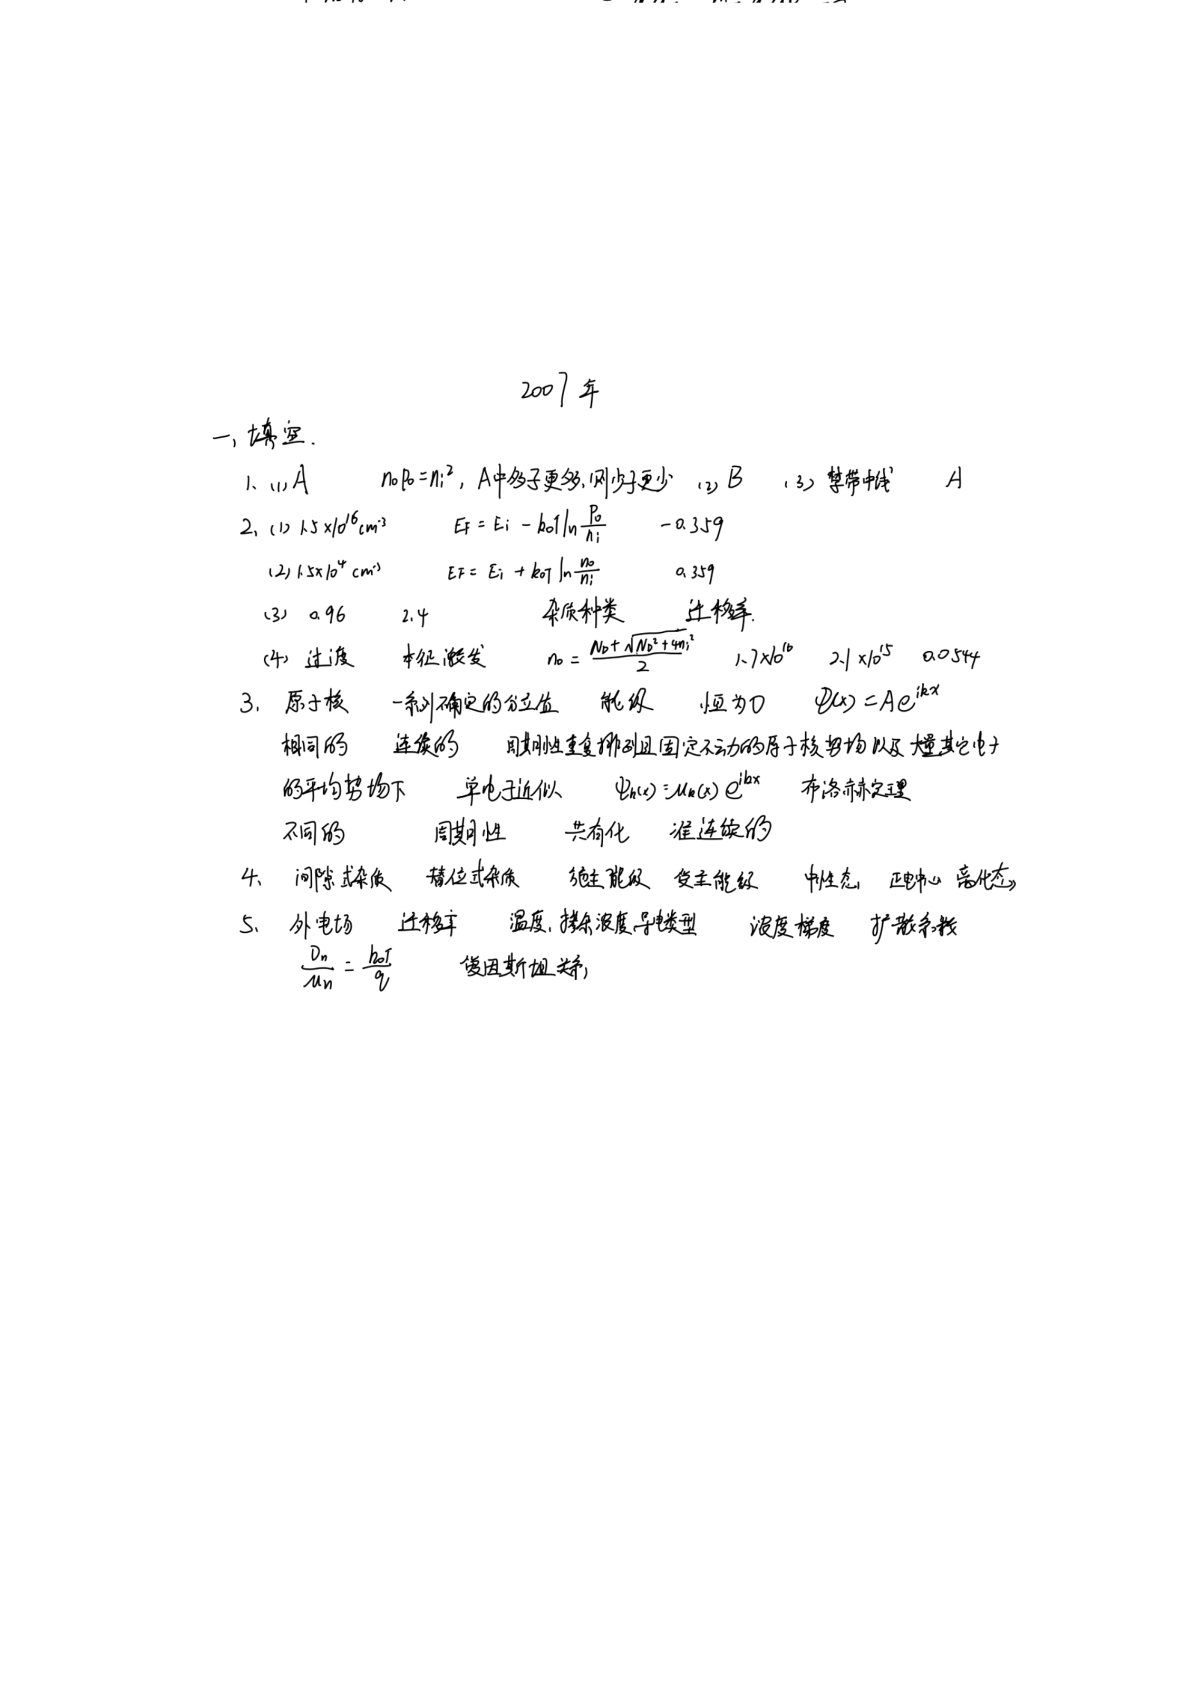 2007年
一、填空.
1、(1) A n₀p₀=nᵢ², A中多子更多,则少子更少 (2) B (3) 禁带中线 A
2、(1) 1.5×10¹⁶cm⁻³ E_F = Eᵢ - k₀T ln p₀/nᵢ -0.359
(2) 1.5×10⁴ cm⁻³ E_F = Eᵢ + k₀T ln n₀/nᵢ 0.359
(3) 0.96 2.4 杂质种类 迁移率.
(4) 过渡 本征激发 n₀ = (N_D+√(N_D²+4nᵢ²))/2 1.7×10¹⁶ 2.1×10¹⁵ 0.0544
3、原子核 一系列确定的分立值 能级 恒为0 ψ(x)=Ae^{ikx}
相同的 连续的 周期性重复排列且固定不动的原子核势场以及大量其它电子
的平均势场下 单电子近似 ψ_k(x)=μ_k(x)e^{ikx} 布洛赫定理
不同的 周期性 共有化 准连续的
4、间隙式杂质 替位式杂质 施主能级 受主能级 中性态 正电中心 离化态
5、外电场 迁移率 温度、掺杂浓度、导电类型 浓度梯度 扩散系数
D_n/μ_n = k₀T/q 爱因斯坦关系